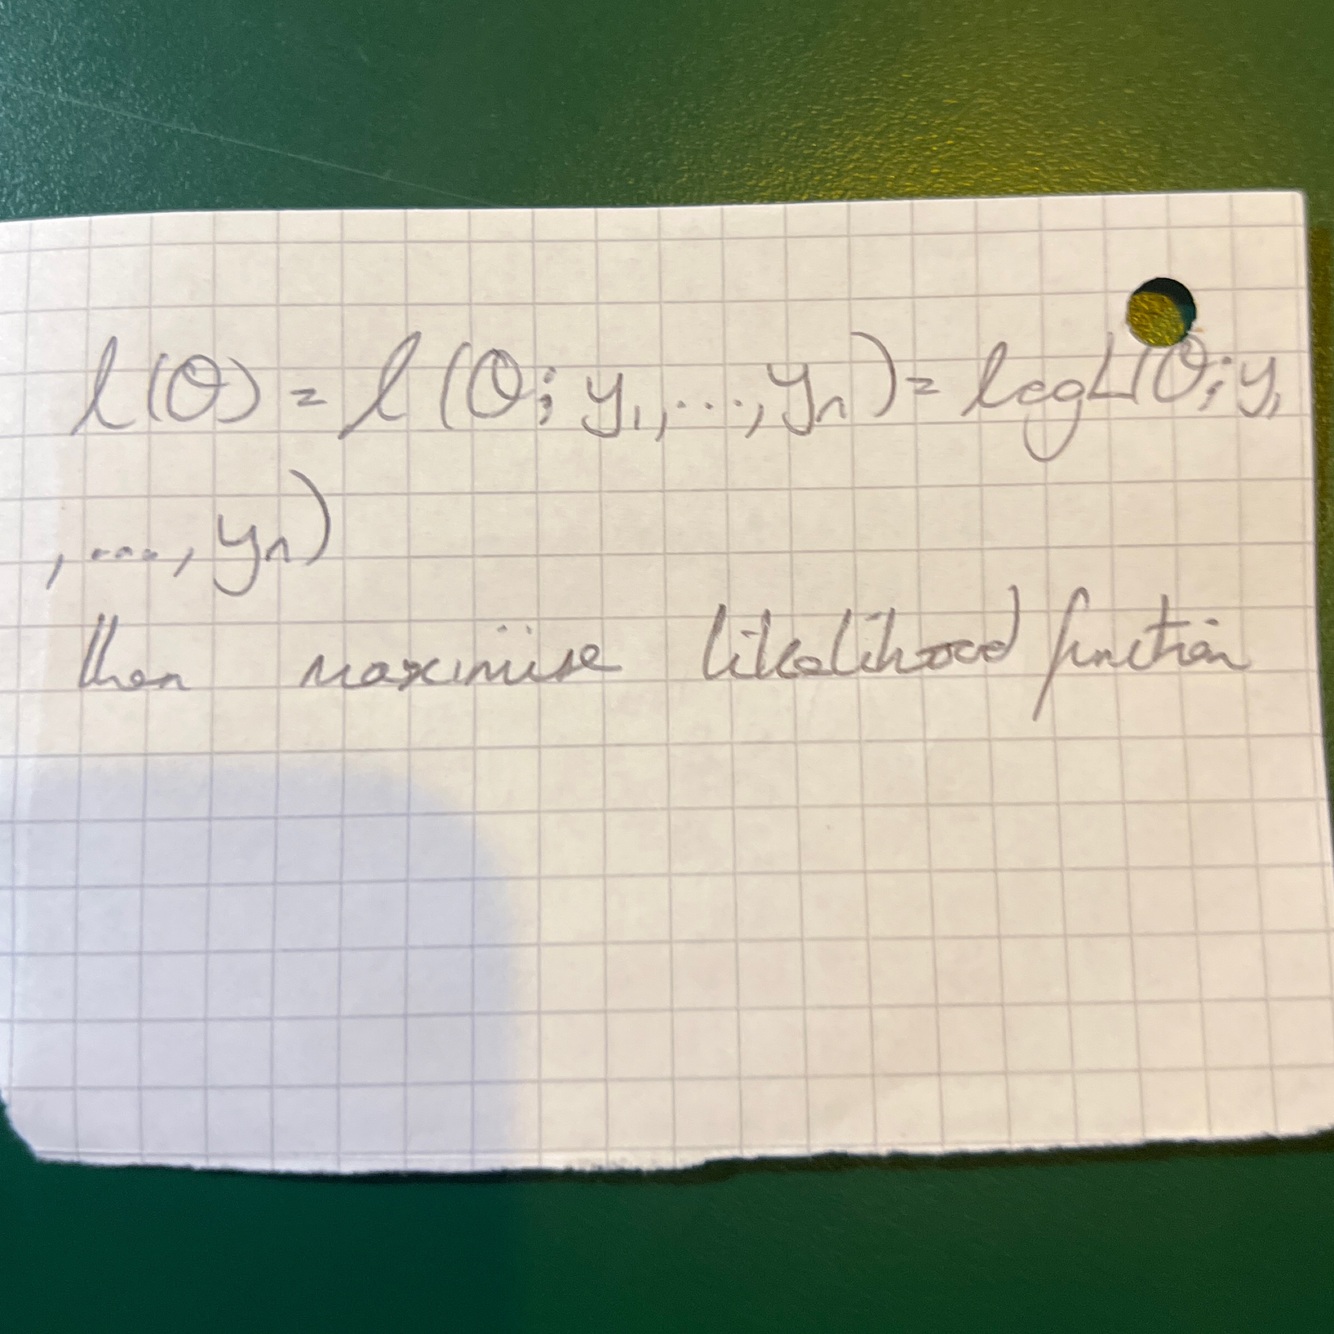 l(θ) = l(θ; y₁,...,yₙ) = log L(θ; y₁
,...., yₙ)
then maximise likelihood function